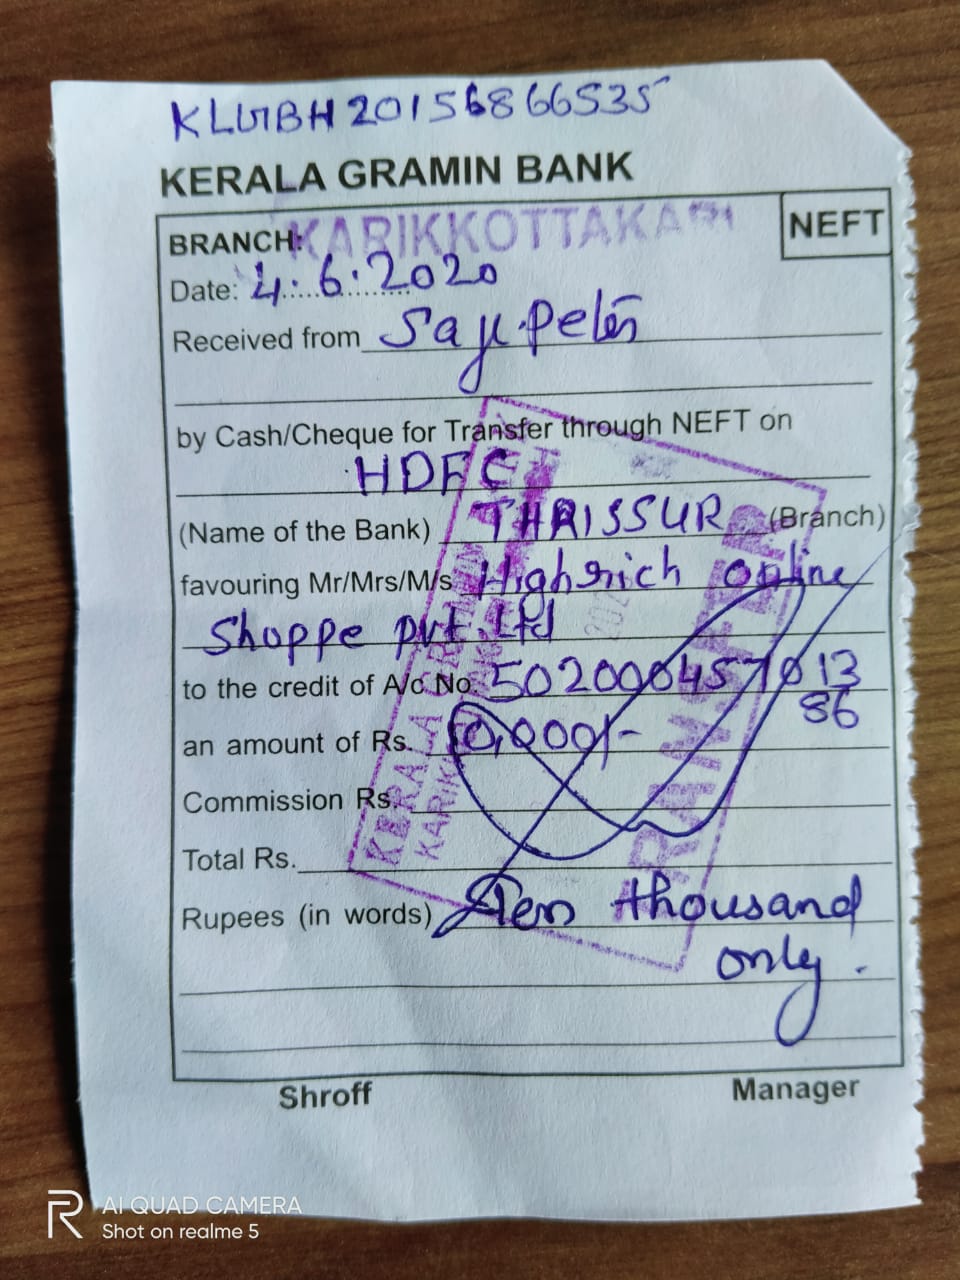 KLGBH20156866535
KERALA GRAMIN BANK
NEFT
BRANCH: KARIKKOTTAKARI
Date: 4.6.2020
Received from Saju Peter
by Cash/Cheque for Transfer through NEFT on
HDFC
(Name of the Bank) THRISSUR (Branch)
favouring Mr/Mrs/M/s Highrich Online
Shoppe pvt. Ltd
to the credit of A/c No. 50200045701386
an amount of Rs. 10,000/-
Commission Rs.
Total Rs.
Rupees (in words) Ten thousand
only.
Shroff Manager
AI QUAD CAMERA
Shot on realme 5